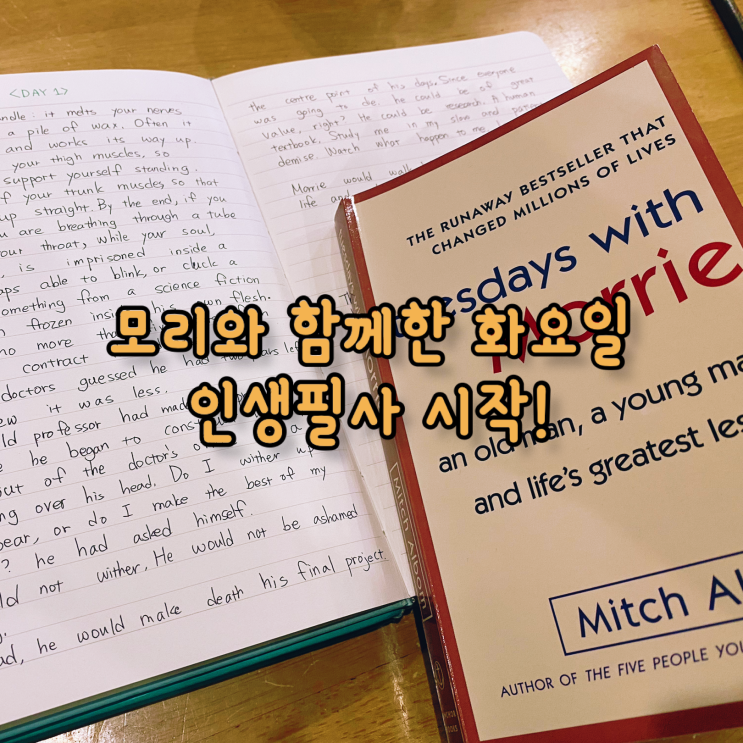 <DAY 1>
ndle: it melts your nerves
a pile of wax. Often it
and works its way up.
your thigh muscles, so
support yourself standing.
f your trunk muscles, so that
up straight. By the end, if you
are breathing through a tube
our throat, while your soul,
is imprisoned inside a
aps able to blink, or cluck a
omething from a science fiction
frozen inside his own flesh.
no more tha
contract
doctors guessed he had two years left
ew it was less.
ld professor had made
e he began to const
out of the doctor's o a
ng over his head. Do I wither up
pear, or do I make the best of my
? he had asked himself.
ld not wither. He would not be ashamed
ad, he would make death his final project.
the centre point of his days. Since everyone
was going to die, he could be of great
value, right? He could be research. A human
textbook. Study me in my slow and patient
demise. Watch what happen to me.
Morrie would walk
life and
THE RUNAWAY BESTSELLER THAT
CHANGED MILLIONS OF LIVES
esdays with
Morrie
an old man, a young ma
and life's greatest les
Mitch Al
AUTHOR OF THE FIVE PEOPLE YOU
Mitch Albom
모리와 함께한 화요일
인생필사 시작!